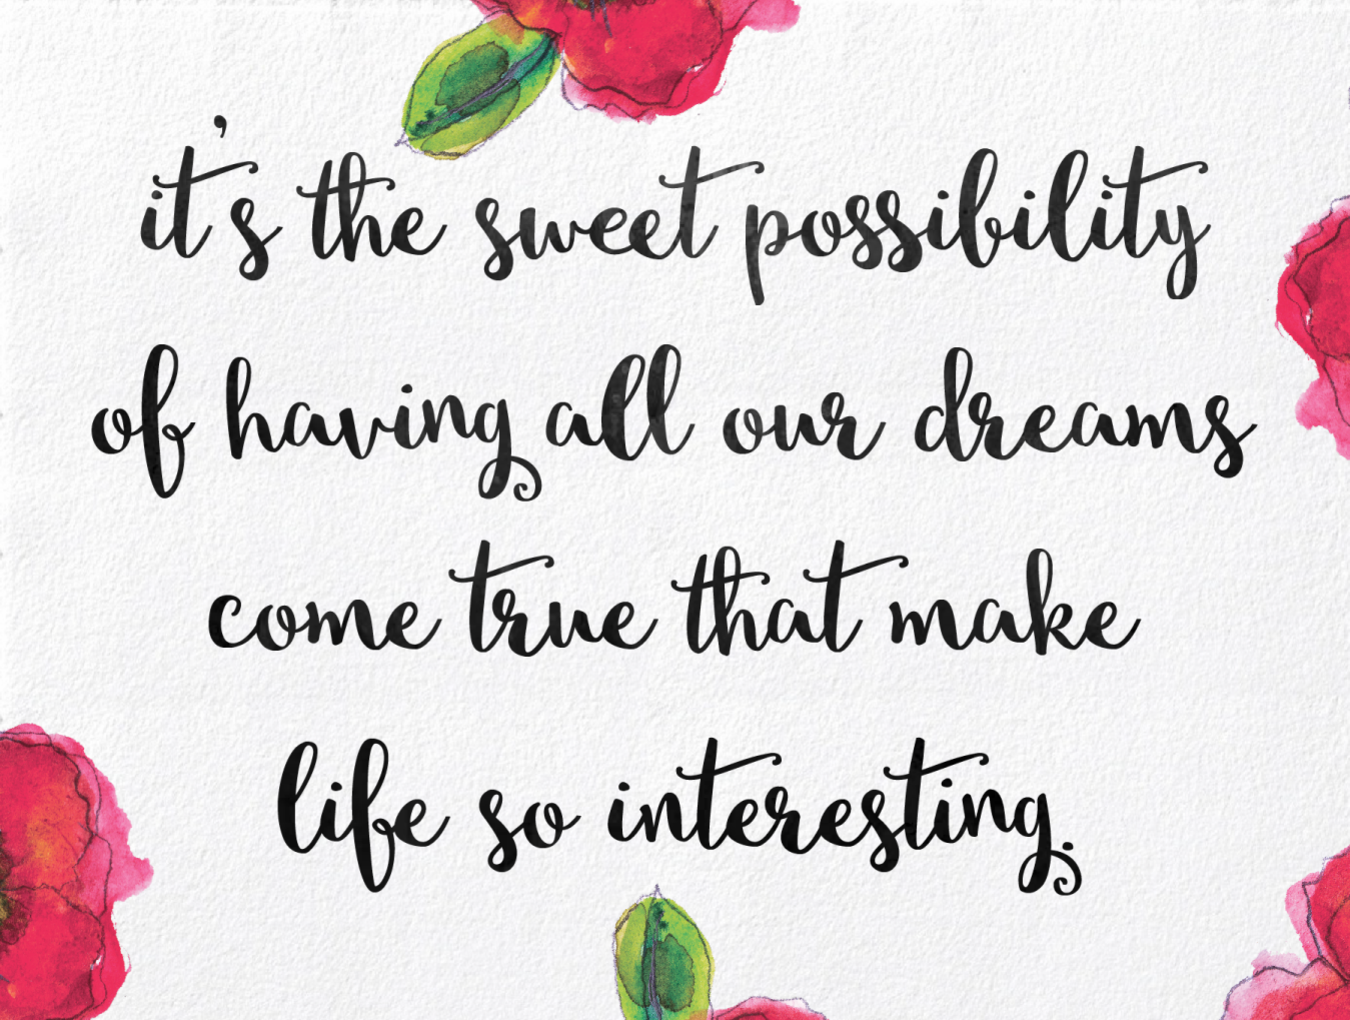 it's the sweet possibility
of having all our dreams
come true that make
life so interesting.